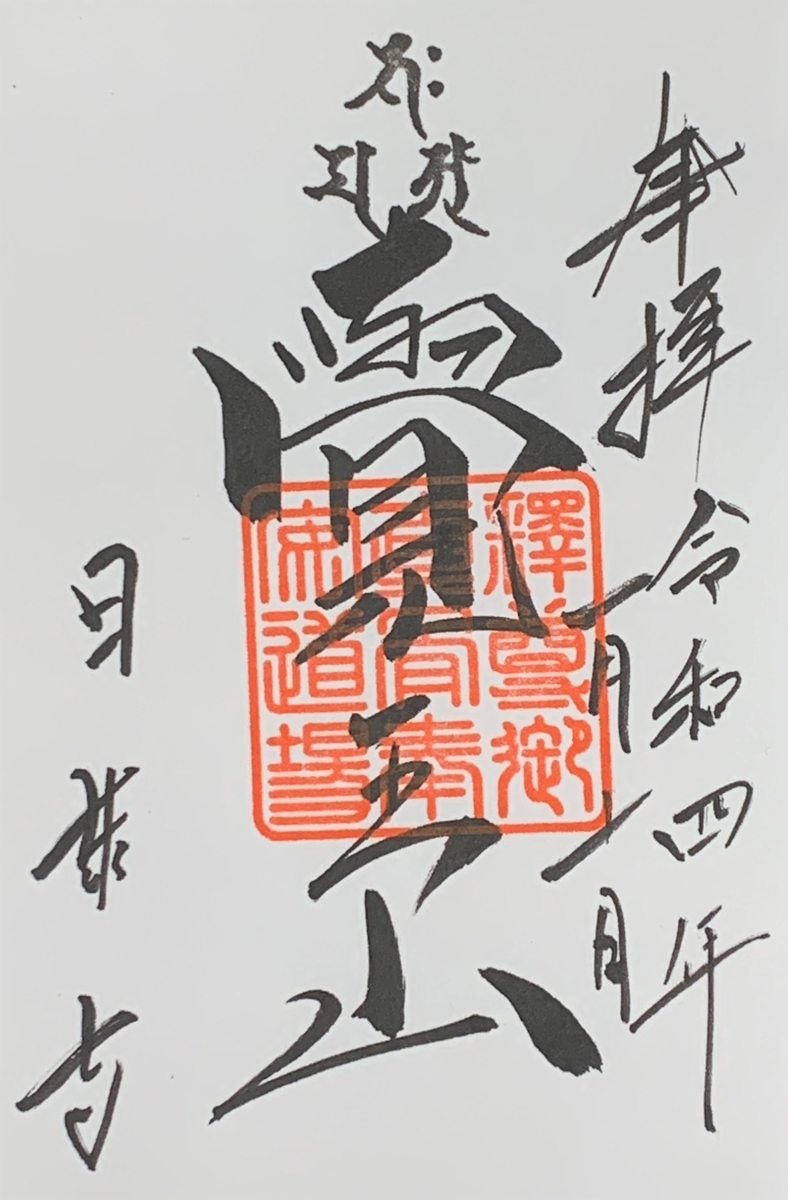 奉拝
令和四年
一月一日
覺王山
釋尊御
眞骨奉
安道場
日泰寺